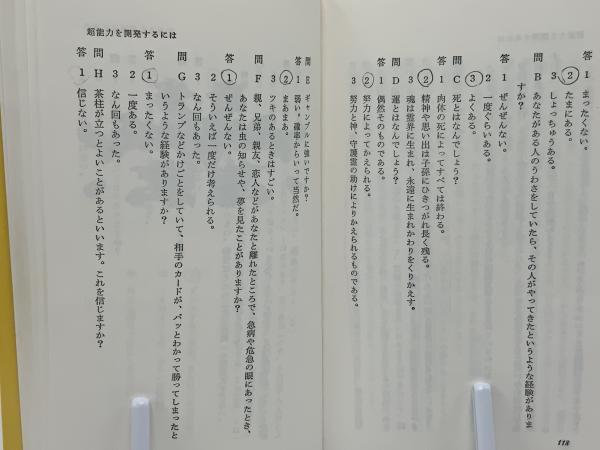 1 まったくない。
② たまにある。
3 しょっちゅうある。
問B あなたがある人のうわさをしていたら、その人がやってきたというような経験がありま
すか?
答1 ぜんぜんない。
2 一度ぐらいある。
③ よくある。
問C 死とはなんでしょう?
答1 肉体の死によってすべては終わる。
② 精神や思い出は子孫にひきつがれ長く残る。
3 魂は霊界に生まれ、永遠に生まれかわりをくりかえす。
問D 運とはなんでしょう?
答1 偶然そのものである。
② 努力によってかえられる。
3 努力と神、守護霊の助けによりかえられるものである。
118
超能力を開発するには
問E ギャンブルに強いですか?
答1 弱い。確率からいって当然だ。
② まあまあ。
3 ツキのあるときはすごい。
問F 親、兄弟、親友、恋人などがあなたと離れたところで、急病や危急の眼にあったとき、
あなたは虫の知らせや、夢を見たことがありますか?
答① ぜんぜんない。
2 そういえば一度だけ考えられる。
3 なん回もあった。
問G トランプなどかけごとをしていて、相手のカードが、パッとわかって勝ってしまったと
いうような経験がありますか?
答① まったくない。
2 一度ある。
3 なん回もあった。
問H 茶柱が立つとよいことがあるといいます。これを信じますか?
答1 信じない。